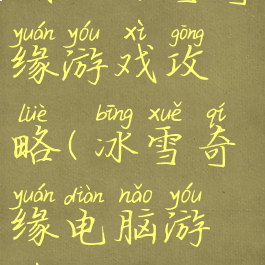 yuán yóu xì gōng
缘游戏攻
lüè bīng xuě qí
略(冰雪奇
yuán diàn nǎo yóu
缘电脑游